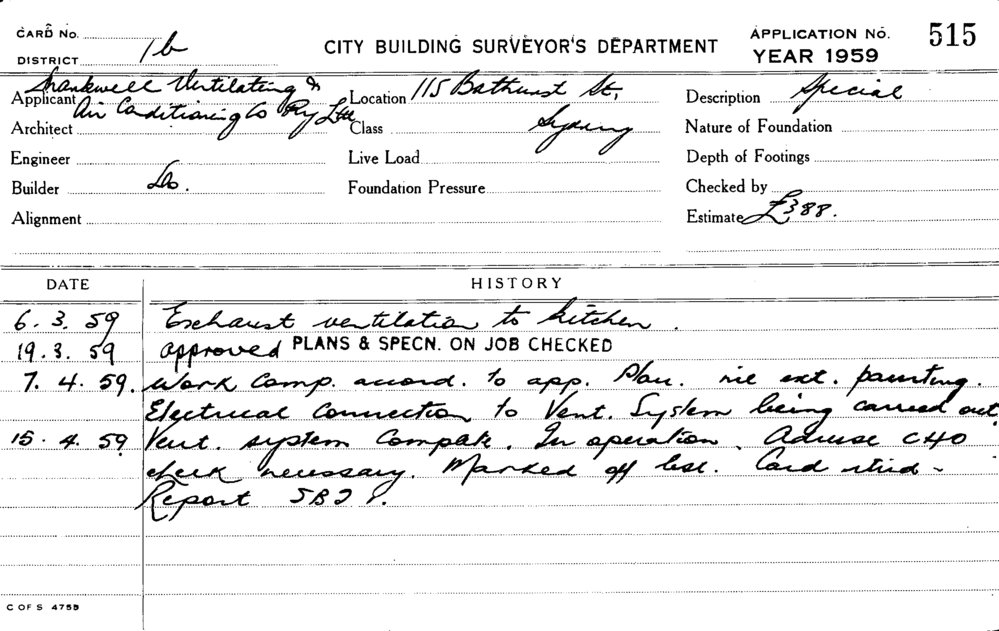 CARD No.
DISTRICT 1b
CITY BUILDING SURVEYOR'S DEPARTMENT
APPLICATION No. 515
YEAR 1959
Applicant Ventilating & Air Conditioning Co Pty Ltd
Location 115 Bathurst St, Sydney
Description Special
Architect
Class
Nature of Foundation
Engineer
Live Load
Depth of Footings
Builder Do.
Foundation Pressure
Checked by
Alignment
Estimate £388.
DATE HISTORY
6. 3. 59 Exhaust ventilation to kitchen.
19. 3. 59 approved PLANS & SPECN. ON JOB CHECKED
7. 4. 59. Work Comp. accord. to app. Plan. nil ext. painting.
Electrical Connection to Vent. System being carried out
15. 4. 59 Vent. system Complete. In operation. Advise CHO
check necessary. Marked off list. Card
Report
C OF S 475B